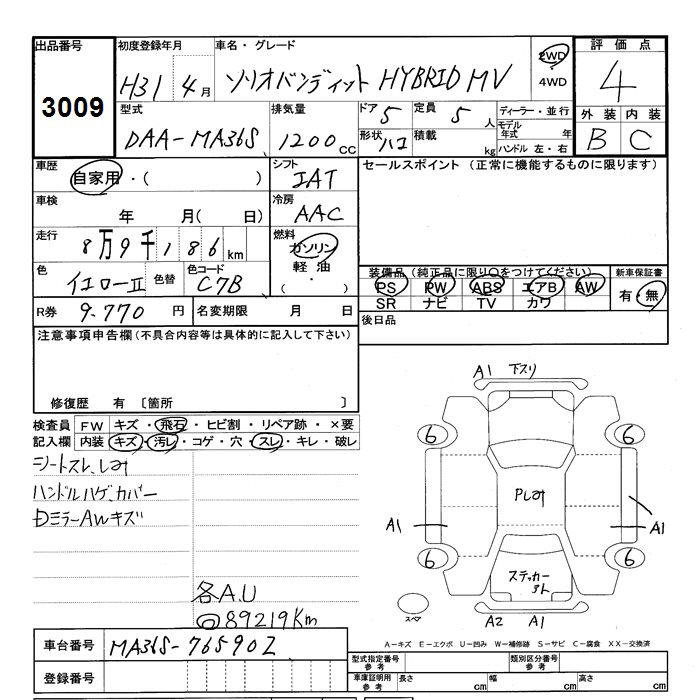 出品番号 初度登録年月 車名・グレード 評価点
3009 H31年4月 ソリオバンディット HYBRID MV 2WD 4WD 4
型式 排気量 ドア 5 定員 5人 ディーラー・並行 外装 内装
DAA-MA36S 1200cc 形状 ハコ 積載 kg モデル年式 年 B C
ハンドル 左・右
車歴 自家用・( ) シフト IAT セールスポイント (正常に機能するものに限ります)
車検 年 月( 日) 冷房 AAC
走行 8万9千186km 燃料 ガソリン 軽油 ( ・ )
色 イエローII 色替 色コード C7B 装備品(純正品に限り○をつけてください) 新車保証書
PS PW ABS エアB AW 有・無
SR ナビ TV カワ
R券 9.770円 名変期限 月 日 後日品
注意事項申告欄(不具合内容等は具体的に記入して下さい)
修復歴 有 〔箇所 〕
検査員 FW キズ・飛石・ヒビ割・リペア跡・×要
記入欄 内装 キズ・汚レ・コゲ・穴・スレ・キレ・破レ
シートスレ、しみ
ハンドルハゲ、カバー
DミラーAWキズ
各A.U
◎89219Km
A1 下スリ
6 6
Pしみ
A1 A1
6 6
ステッカー
スペア A2 A1
A-キズ E-エクボ U-凹み W-補修跡 S-サビ C-腐食 XX-交換済
車台番号 MA36S-765902
型式指定番号 参考 類別区分番号 参考
登録番号 車庫証明用 参考 長さ cm 幅 cm 高さ cm